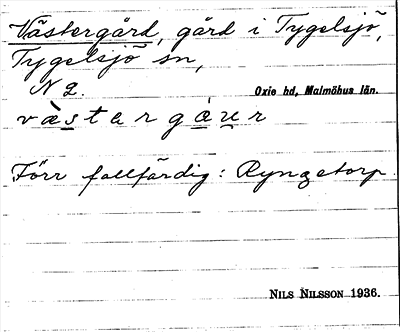 Västergård, gård i Tygelsjö,
Tygelsjö sn,
N 2.
Oxie hd, Malmöhus län.
væ̀stargáur
Förr fallfärdig: Ryngetorp.
NILS NILSSON 1936.